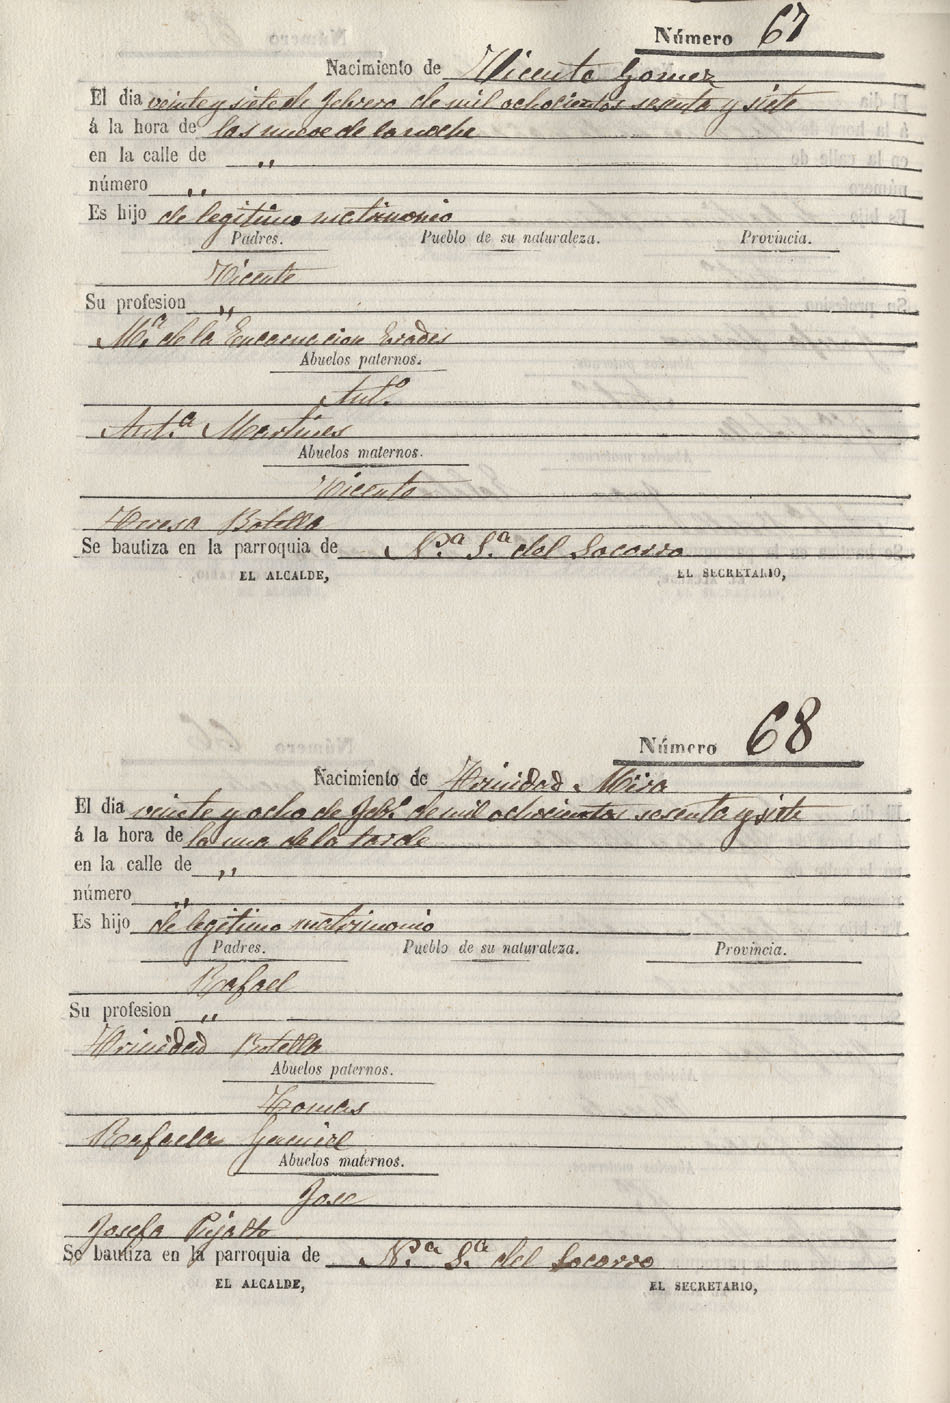 Número 67
Nacimiento de Vicente Gomez
El dia veinte y siete de febrero de mil ochocientos sesenta y siete
á la hora de las nueve de la noche
en la calle de ,,
número ,,
Es hijo de legitimo matrimonio
Padres. Pueblo de su naturaleza. Provincia.
Vicente
Su profesion ,,
M.ª de la Encarnacion Erades
Abuelos paternos.
Ant.º
Ant.ª Martines
Abuelos maternos.
Vicente
Teresa Botella
Se bautiza en la parroquia de N.ª S.ª del Socorro
EL ALCALDE, EL SECRETARIO,
Número 68
Nacimiento de Trinidad Mira
El dia veinte y ocho de Feb.º de mil ochocientos sesenta y siete
á la hora de la una de la tarde
en la calle de ,,
número ,,
Es hijo de legitimo matrimonio
Padres. Pueblo de su naturaleza. Provincia.
Rafael
Su profesion ,,
Trinidad Botella
Abuelos paternos.
Tomas
Rafaela
Abuelos maternos.
Jose
Josefa Pujalto
Se bautiza en la parroquia de N.ª S.ª del Socorro
EL ALCALDE, EL SECRETARIO,